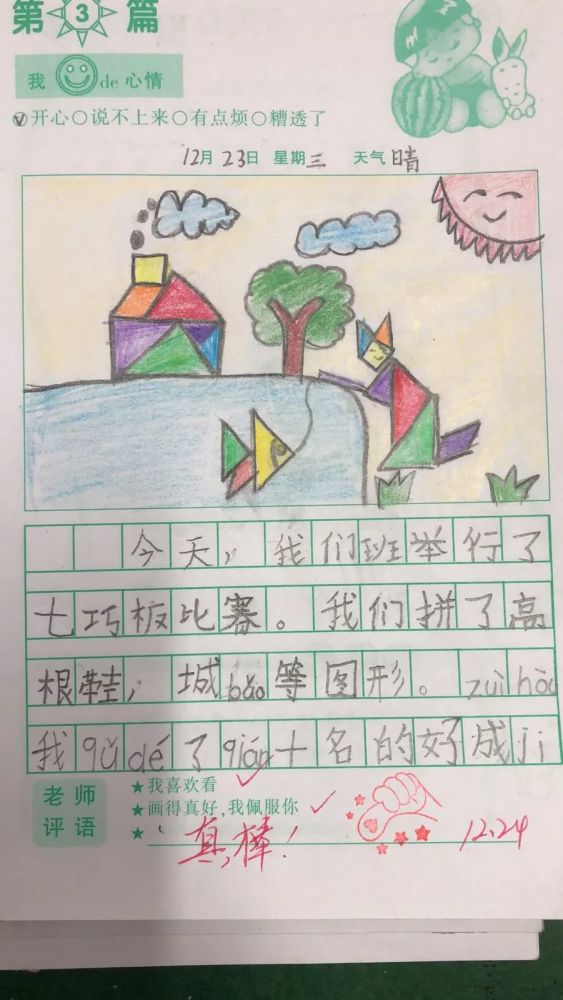 第3篇
我de心情
开心○说不上来○有点烦○糟透了
12月23日 星期三 天气晴
今天，我们班举行了
七巧板比赛。我们拼了高
根鞋，城bǎo等图形。zuì hòu
我qǔ dé了qián十名的好成jì
老师评语
★我喜欢看
★画得真好，我佩服你
★真棒！ 12.24